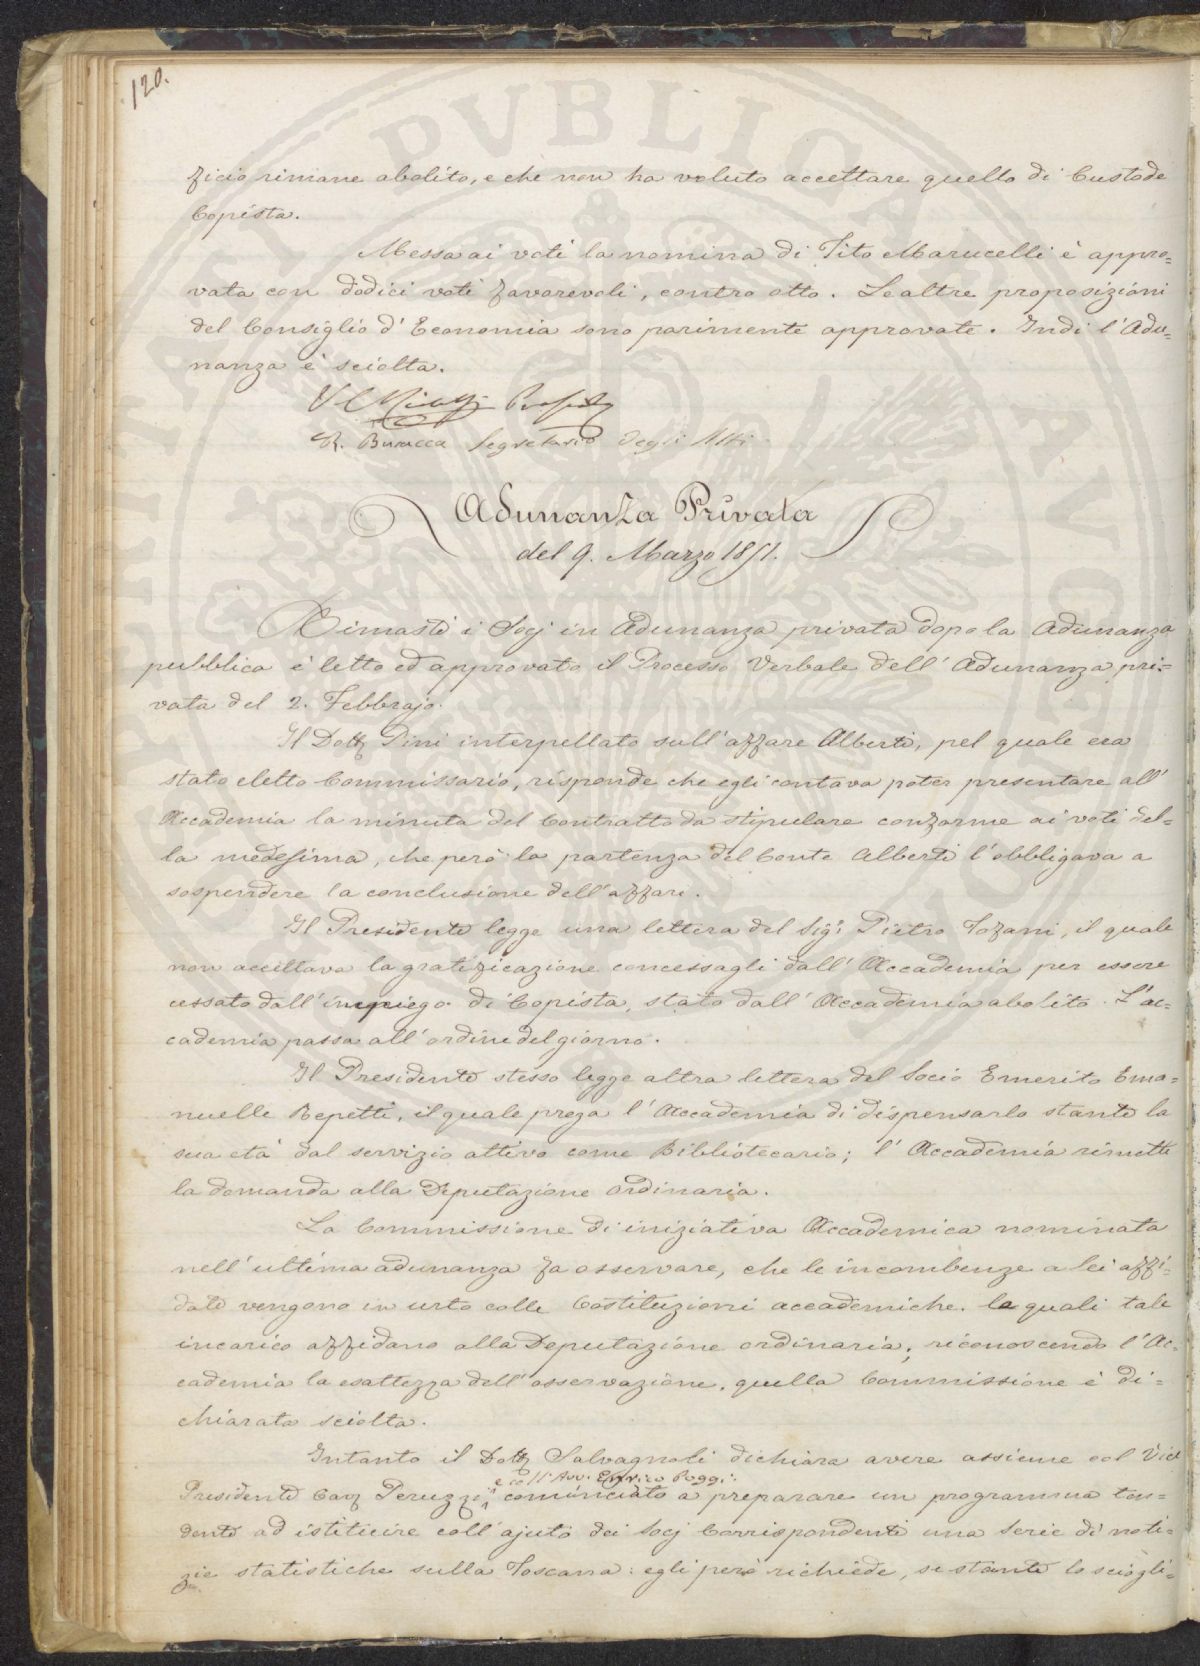 120.
ficio rimane abolito, e che non ha voluto accettare quello di Custode
Copista.
Messa ai voti la nomina di Tito Marucelli è appro=
vata con dodici voti favorevoli, contro otto. Le altre proposizioni
del Consiglio d'Economia sono parimente approvate. Indi l'Adu=
nanza è sciolta.
R. Buracca Segretario degli Atti
Adunanza Privata
del 9. Marzo 1851.
Rimasti i Socj in Adunanza privata dopo la Adunanza
pubblica è letto ed approvato il Processo Verbale dell'Adunanza pri=
vata del 2. Febbrajo.
Il Dott. Pini interpellato sull'affare Alberti, pel quale era
stato eletto Commissario, risponde che egli contava poter presentare all'
Accademia la minuta del Contratto da stipulare conforme ai voti del=
la medesima, che però la partenza del Conte Alberti l'obbligava a
sospendere la conclusione dell'affare.
Il Presidente legge una lettera del Sig: Pietro Tofani, il quale
non accettava la gratificazione concessagli dall'Accademia per essere
cessato dall'impiego di Copista, stato dall'Accademia abolito. L'ac=
cademia passa all'ordine del giorno.
Il Presidente stesso legge altra lettera del Socio Emerito Ema=
nuelle Repetti, il quale prega l'Accademia di dispensarlo stante la
sua età dal servizio attivo come Bibliotecario; l'Accademia rimette
la domanda alla Deputazione Ordinaria.
La Commissione di iniziativa Accademica nominata
nell'ultima adunanza fa osservare, che le incombenze a lei affi=
date vengono in urto colle Costituzioni accademiche, le quali tale
incarico affidano alla Deputazione ordinaria; riconoscendo l'Ac=
cademia la esattezza dell'osservazione, quella Commissione è di=
chiarata sciolta.
Intanto il Dott. Salvagnoli dichiara avere assieme col Vice
e coll'Avv. Enrico Poggi:
Presidente Cav. Peruzzi cominciato a preparare un programma ten=
dente ad istituire coll'ajuto dei Socj Corrispondenti una serie di noti=
zie statistiche sulla Toscana: egli però richiede, se stante lo sciogli=
PVBLICA